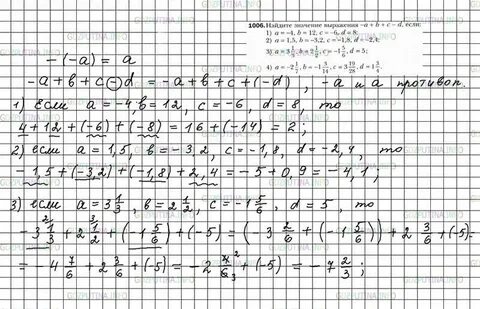 1006. Найдите значение выражения -a + b + c - d, если:
1) a = -4, b = 12, c = -6, d = 8;
2) a = 1,5, b = -3,2, c = -1,8, d = -2,4;
3) a = 3 1/3, b = 2 1/2, c = -1 5/6, d = 5;
4) a = -2 1/7, b = -1 3/14, c = 3 19/28, d = 1
-(-a) = a
-a + b + c - d = -a + b + c + (-d) , -a и a против.
1) если a = -4, b = 12, c = -6, d = 8, то
4 + 12 + (-6) + (-8) = 16 + (-14) = 2;
2) если a = 1,5, b = -3,2, c = -1,8, d = -2,4, то
-1,5 + (-3,2) + (-1,8) + 2,4 = -5 + 0,9 = -4,1;
3) если a = 3 1/3, b = 2 1/2, c = -1 5/6, d = 5, то
-3 1/3 + 2 1/2 + (-1 5/6) + (-5) = (-3 2/6 + (-1 5/6)) + 2 3/6 + (-5) =
= -4 7/6 + 2 3/6 + (-5) = -2 4/6 + (-5) = -7 2/3;